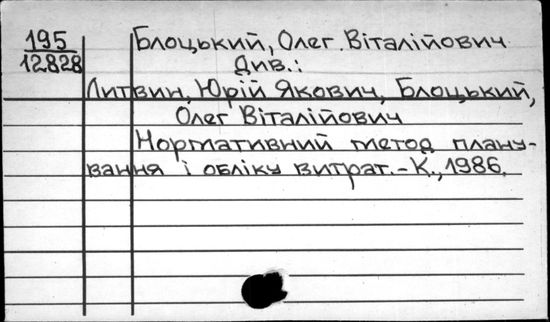 195
12828
Блоцький, Олег Віталійович
Див.:
Литвин, Юрій Якович, Блоцький,
Олег Віталійович
Нормативний метод плану-
вання і обліку витрат.-К., 1986.